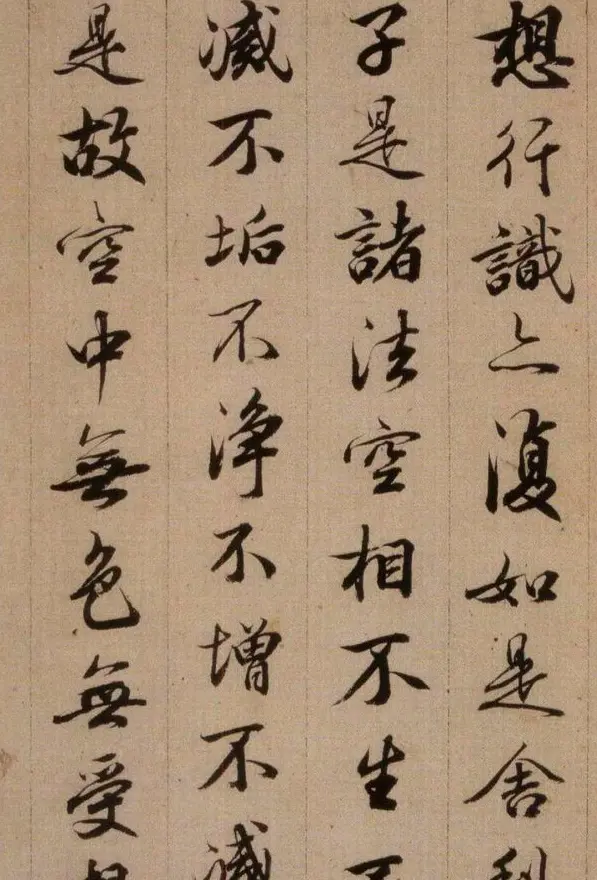 想行識亦復如是舍利
子是諸法空相不生不
滅不垢不淨不增不減
是故空中無色無受